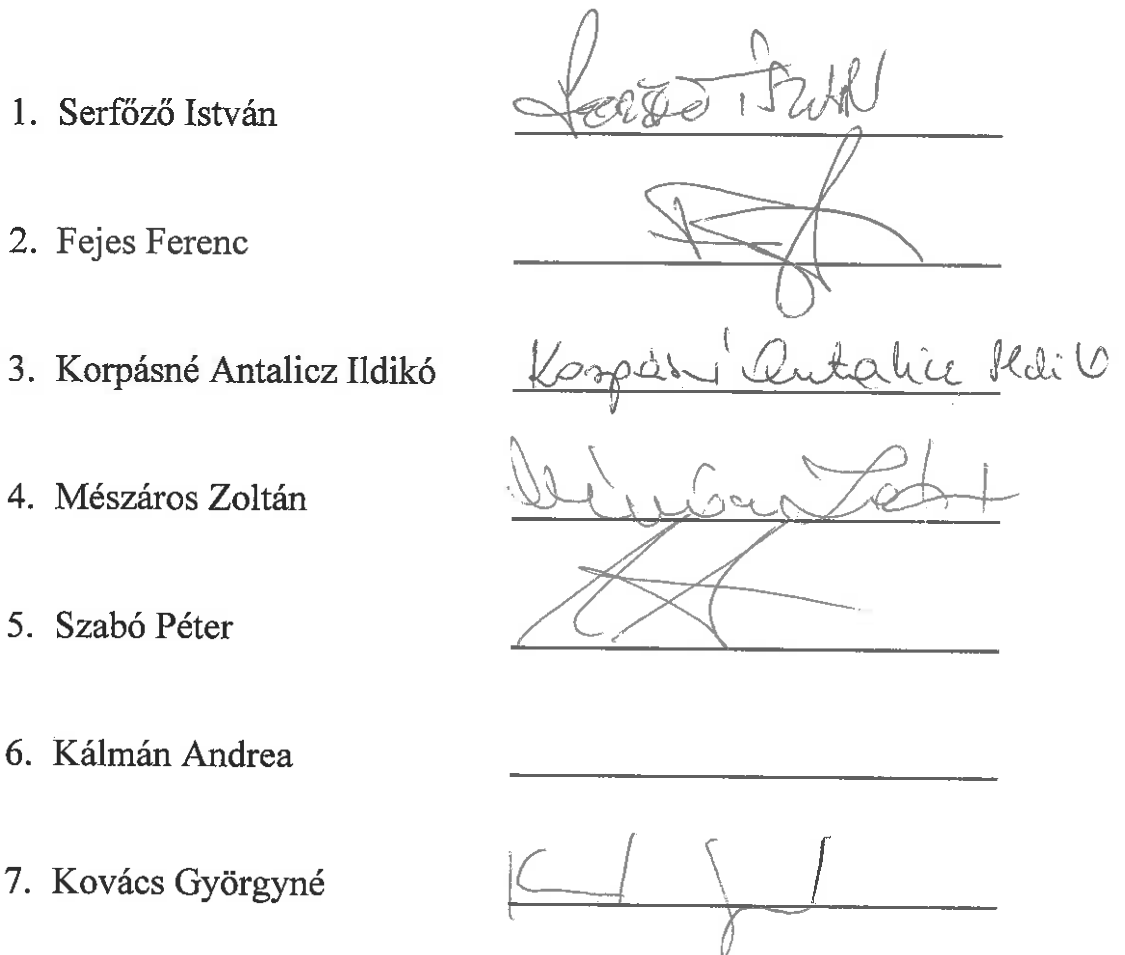 1. Serfőző István
2. Fejes Ferenc
3. Korpásné Antalicz Ildikó Korpásné Antalicz Ildikó
4. Mészáros Zoltán
5. Szabó Péter
6. Kálmán Andrea
7. Kovács Györgyné